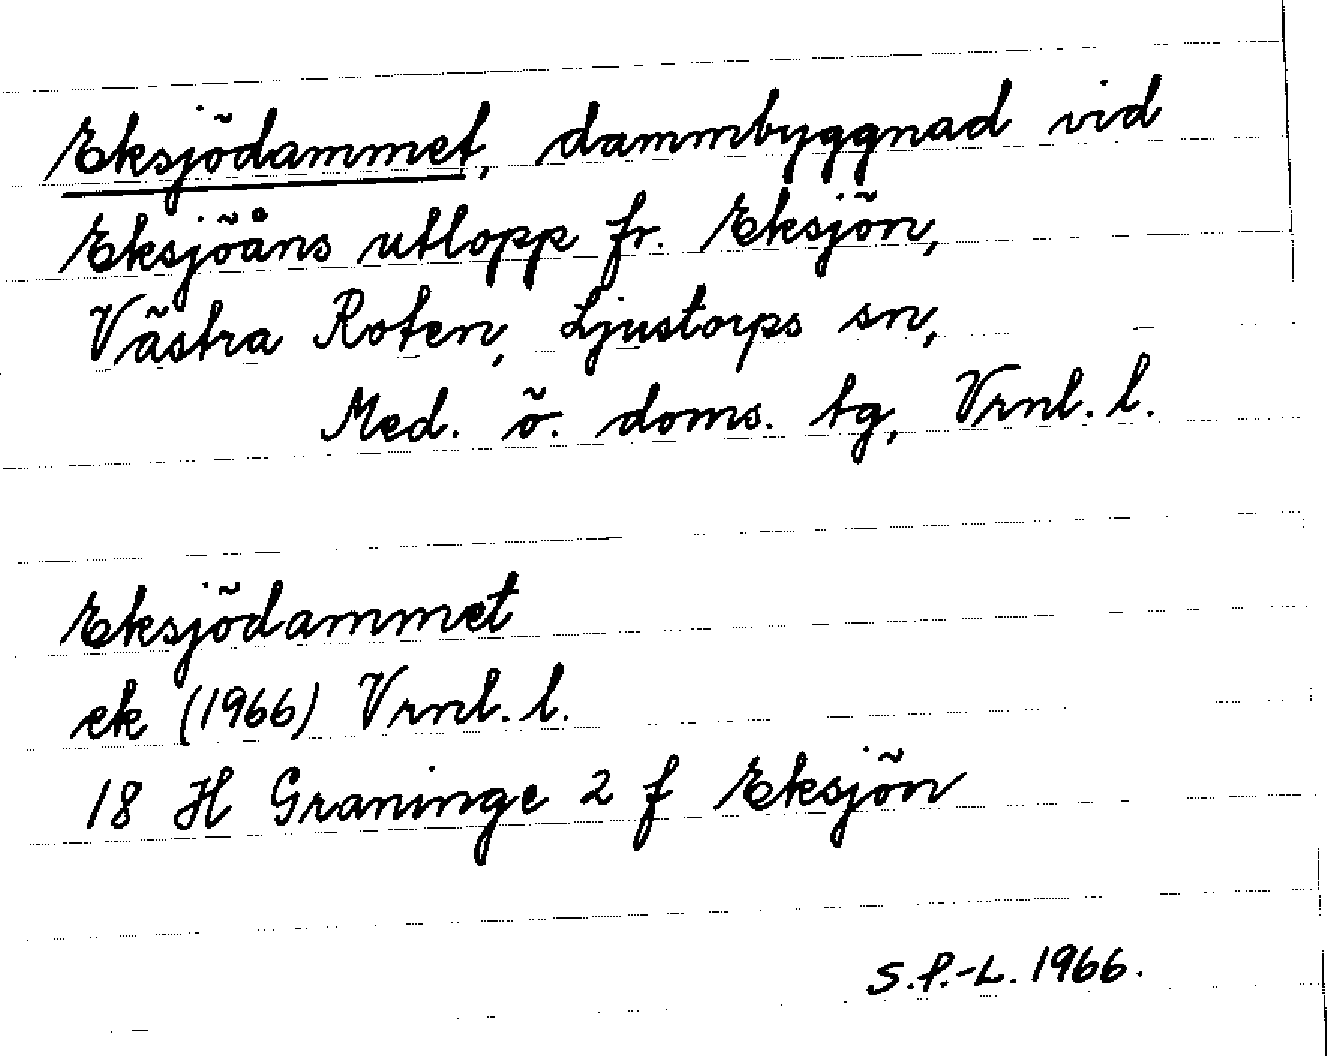 Eksjödammet, dammbyggnad vid
Eksjöåns utlopp fr. Eksjön,
Västra Roten, Ljustorps sn,
Med. ö. doms. tg, Vrnl. l.
Eksjödammet
ek (1966) Vrnl. l.
18 H Graninge 2 f Eksjön
S.P.-L. 1966.